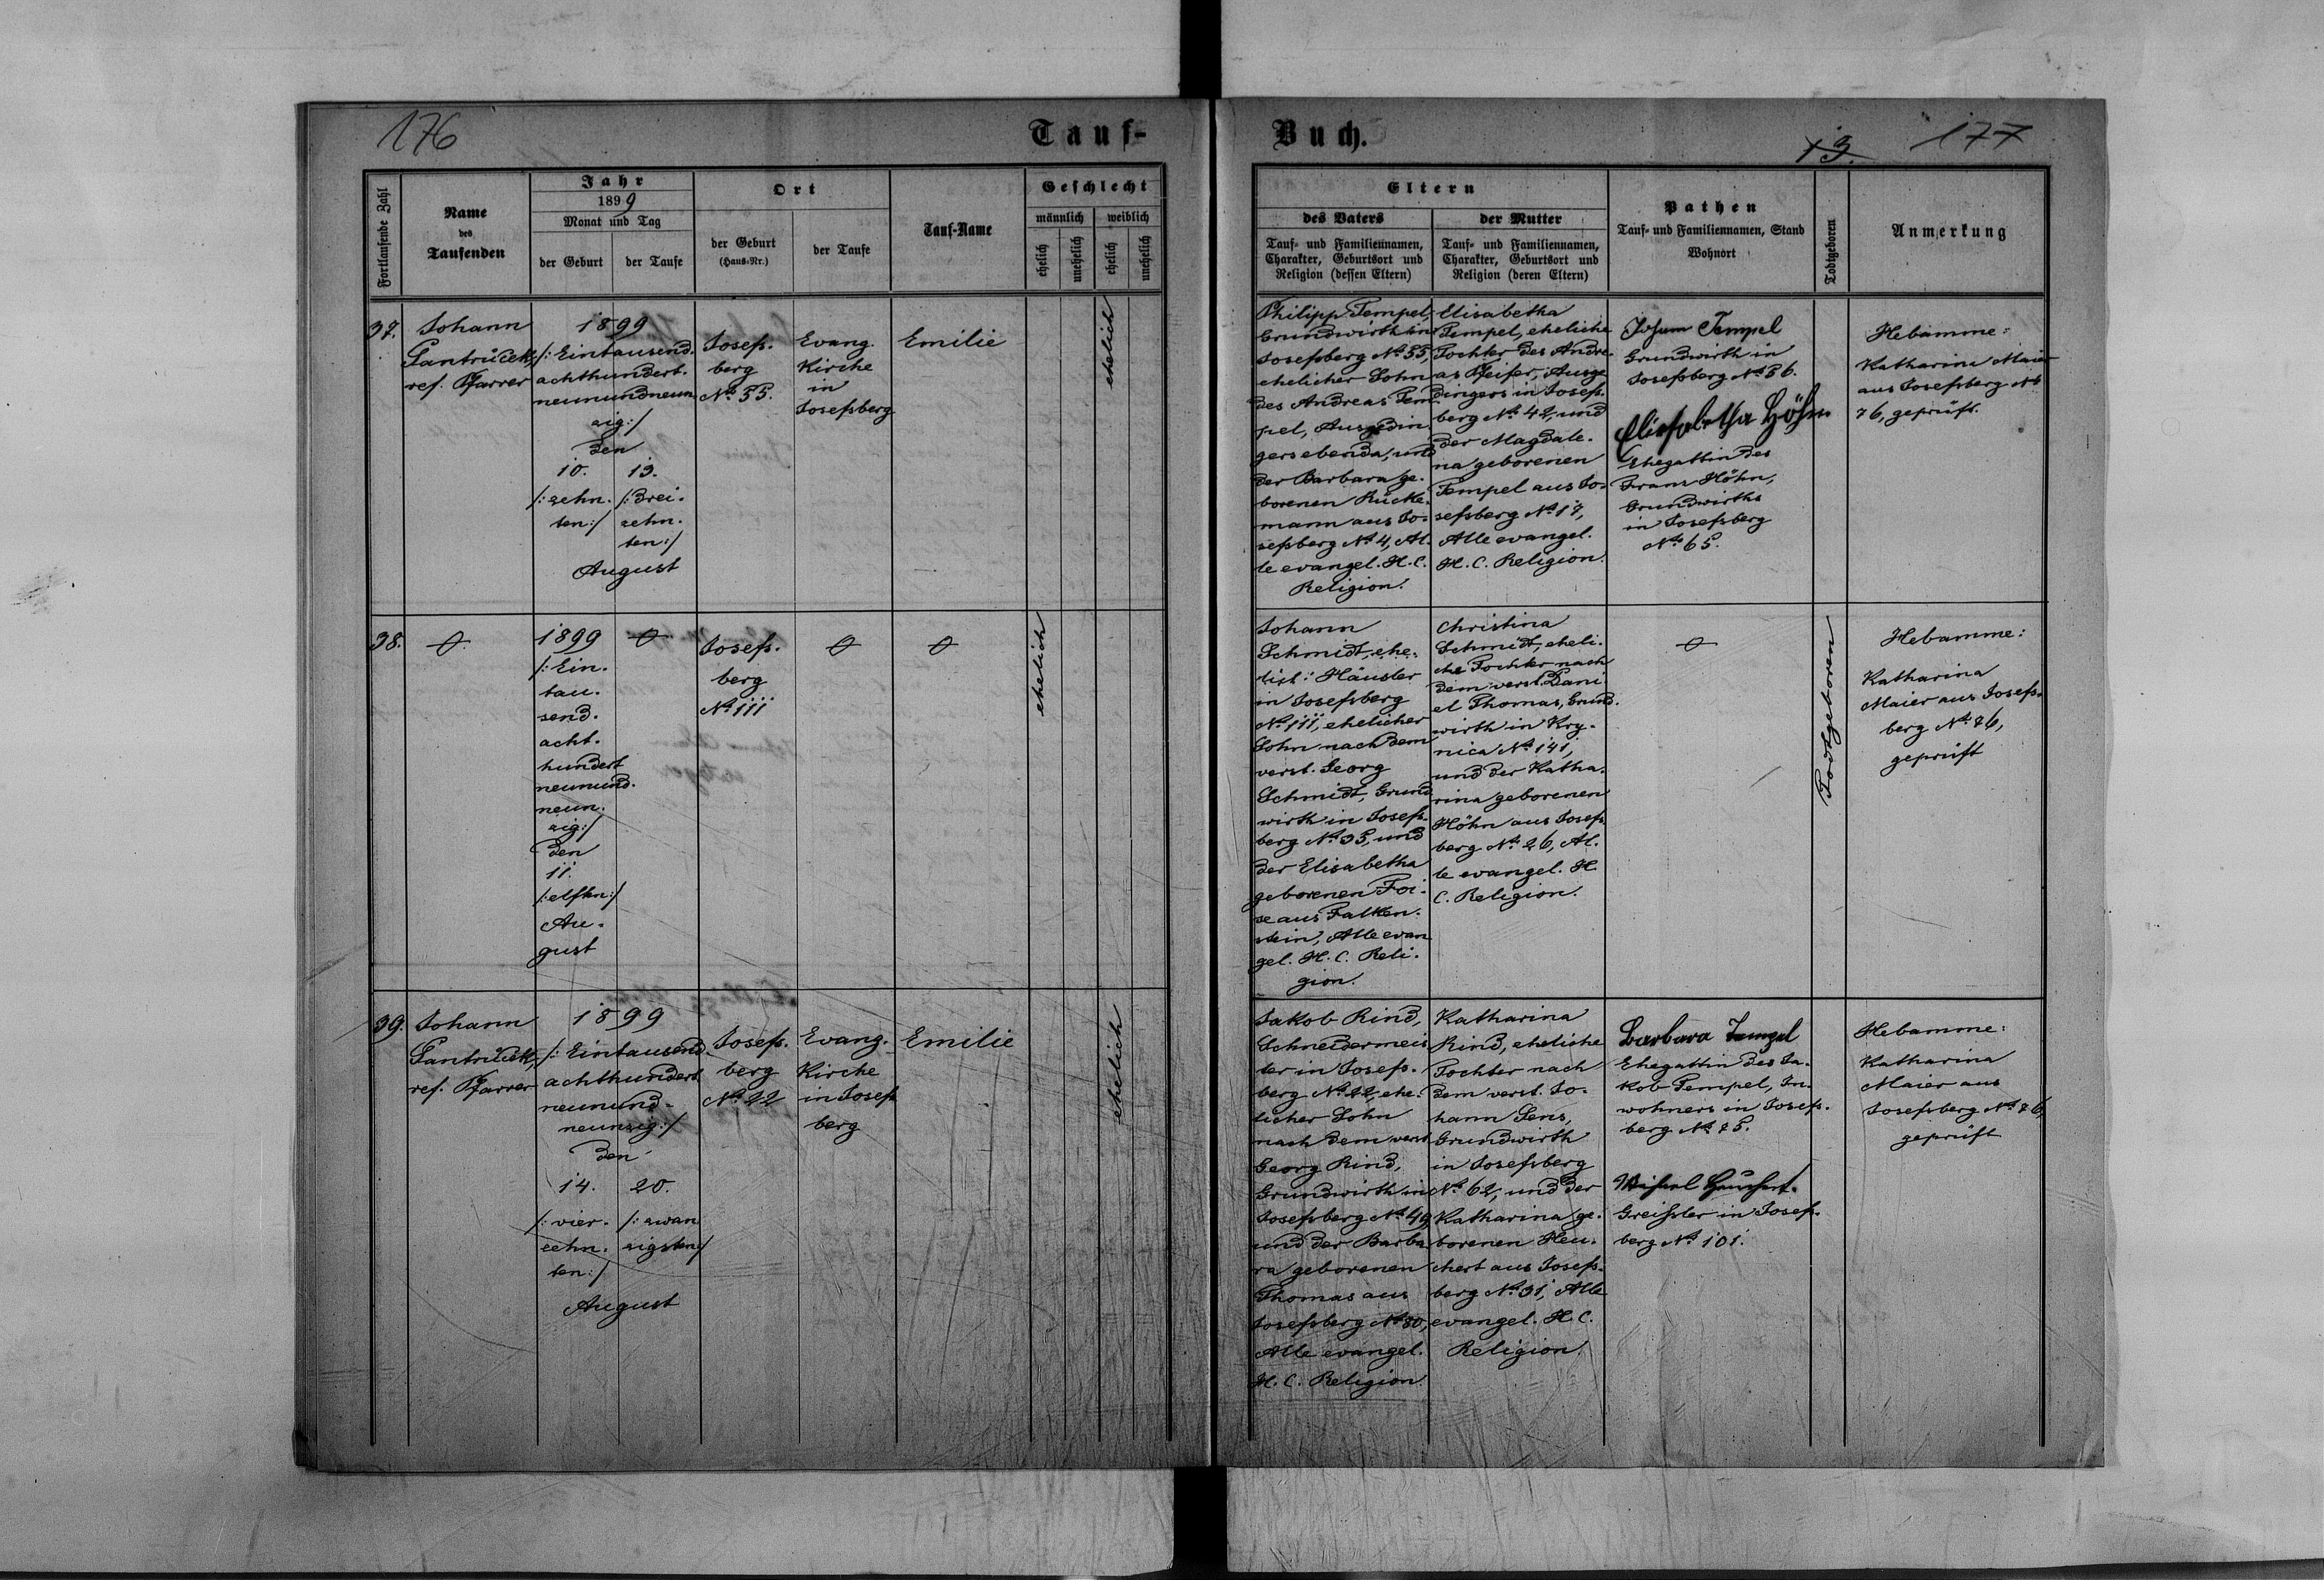 176
Tauf-
Fortlaufende Zahl
Name
des
Taufenden
Jahr
1899
Monat und Tag
der Geburt
der Taufe
Ort
der Geburt
(Haus-Nr.)
der Taufe
Tauf-Name
Geschlecht
männlich
weiblich
ehelich
unehelich
ehelich
unehelich
37.
Johann
ref. Pfarrer
1899
/: Eintausend.
achthundert.
neunundneun
zig:/
den
10.
/: zehn.
ten:/
13.
/: drei.
zehn.
ten:/
August
Josefs.
berg
No 55.
Evang.
Kirche
in
Josefsberg
Emilie
ehelich
38.
1899
/: Ein.
tau.
send.
acht.
hundert
neunund.
neun.
zig:/
den
11.
/: elften:/
Au.
gust
Josefs.
berg
No 111
ehelich
39.
Johann
ref. Pfarrer
1899
/: Eintausend
achthundert
neunund-
neunzig:/
den
14.
/: vier.
zehn.
ten:/
20.
/: zwan
zigsten:/
August
Josefs.
berg
No 22
Evang.
Kirche
in Josefs
berg
Emilie
ehelich
Buch.
13.
177
Eltern
des Vaters
Tauf- und Familiennamen,
Charakter, Geburtsort und
Religion (dessen Eltern)
der Mutter
Tauf- und Familiennamen,
Charakter, Geburtsort und
Religion (deren Eltern)
Pathen
Tauf- und Familiennamen, Stand
Wohnort
Todtgeboren
Anmerkung
Philipp Tempel,
Grundwirth in
Josefsberg No 55,
ehelicher Sohn
des Andreas Tem.
pel, Ausgedin.
gers ebenda, und
der Barbara ge.
borenen Rücke.
mann aus Jo.
sefsberg No 4, Al.
le evangel. H. C.
Religion.
Elisabetha
Tempel, eheliche
Tochter des Andre.
as Pfeifer, Ausge
dingers in Josefs.
berg No 42, und
der Magdale.
na geborenen
Tempel aus Jo.
sefsberg No 17,
Alle evangel.
H. C. Religion.
Tempel
Grundwirth in
Josefsberg No 56.
Elisabetha Höhn
Ehegattin des
Franz Höhn,
Grundwirths
in Josefsberg
No 65.
Hebamme:
Katharina Maier
aus Josefsberg No
76, geprüft.
Johann
Schmidt, ehe.
lich: Häusler
in Josefsberg
No 111, ehelicher
Sohn nach dem
verst. Georg
Schmidt, Grund
wirth in Josefs.
berg No 35, und
der Elisabetha
geborenen
se aus Falken.
stein, Alle evan
gel. H. C. Reli.
gion.
Christina
Schmidt, eheli.
che Tochter nach
dem verst. Dani
el Thomas, Grund.
wirth in Kry.
nica No 141,
und der Katha.
rina geborenen
Höhn aus Josefs
berg No 26, Al.
le evangel. H.
C. Religion.
Todtgeboren
Hebamme:
Katharina
Maier aus Josefs.
berg No 76,
geprüft
Jakob Rind,
Schneidermeis
ter in Josefs.
berg No 22, ehe.
licher Sohn
nach dem verst
Georg Rind,
Grundwirth in
Josefsberg No 49,
und der Barba
ra geborenen
Thomas aus
Josefsberg No 80,
Alle evangel.
H. C. Religion.
Katharina
Rind, eheliche
Tochter nach
dem verst. Jo.
hann Sens,
Grundwirth
in Josefsberg
No 62, und der
Katharina ge.
borenen Heu.
chert aus Josefs.
berg No 31, Alle
evangel. H. C.
Religion.
Barbara Tempel
Ehegattin des Ja.
kob Tempel, In.
wohners in Josefs.
berg No 75.
Greißler in Josefs.
berg No 101.
Hebamme:
Katharina
Maier aus
Josefsberg No 76,
geprüft